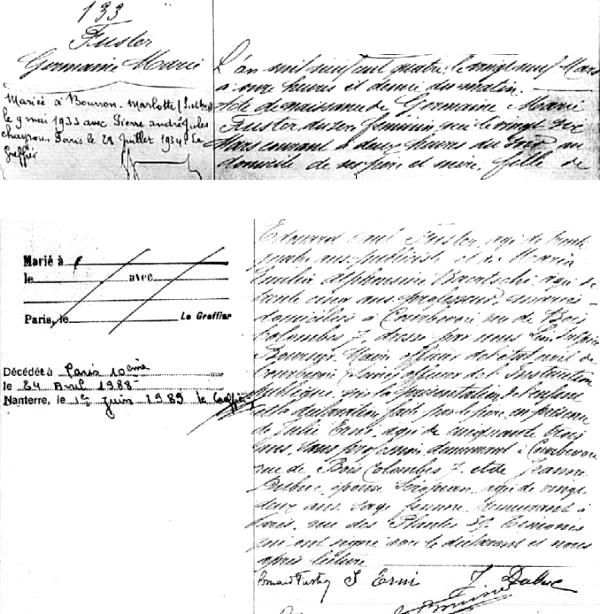 133
Fuster
Germaine Marie
Mariée à Bourron-Marlotte (S.et M.)
le 9 mai 1933 avec Pierre André Jules
Chayrou. Paris le 28 Juillet 1934 Le
Greffier
L'an mil neuf cent quatre, le vingt neuf Mars
à onze heures et demie du matin.
Acte de naissance de Germaine Marie
Fuster du sexe féminin, née le vingt six
Mars courant à deux heures du soir au
domicile de ses père et mère, fille de
Marié à
le avec
Paris, le Le Greffier
Décédée à Paris 10ème
le 24 Avril 1988
Nanterre, le 1er Juin 1989 le Greffier
Edouard Paul Fuster, âgé de trente
quatre ans, publiciste et de Maria
Emilia Alphonsine, âgée de
trente cinq ans, professeur, mariés
domiciliés à Courbevoie rue de Bois
Colombes 7, dressé par nous
Maire officier de l'état civil de
Courbevoie, officier de l'Instruction
publique, sur la présentation de l'enfant
et la déclaration faite par le père, en présence
de Julie Erni, âgée de cinquante trois
ans, sans profession demeurant à Courbevoie
rue de Bois Colombes 7, et de Jeanne
Dubuc, épouse, âgée de vingt
deux ans, sage femme, demeurant à
Paris, rue des Plantes, témoins
qui ont signé avec le déclarant et nous
après lecture.
Fuster J Erni J. Dubuc